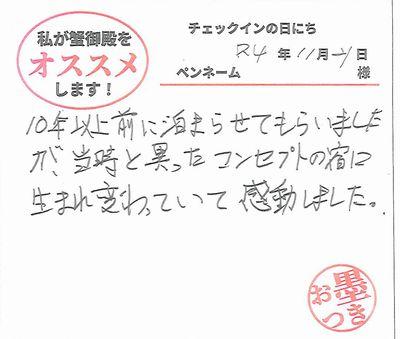 私が蟹御殿を
オススメ
します!
チェックインの日にち
R4年11月 日
ペンネーム 様
10年以上前に泊まらせてもらいました
が、当時と異ったコンセプトの宿に
生まれ変わっていて感動しました。
お墨つき